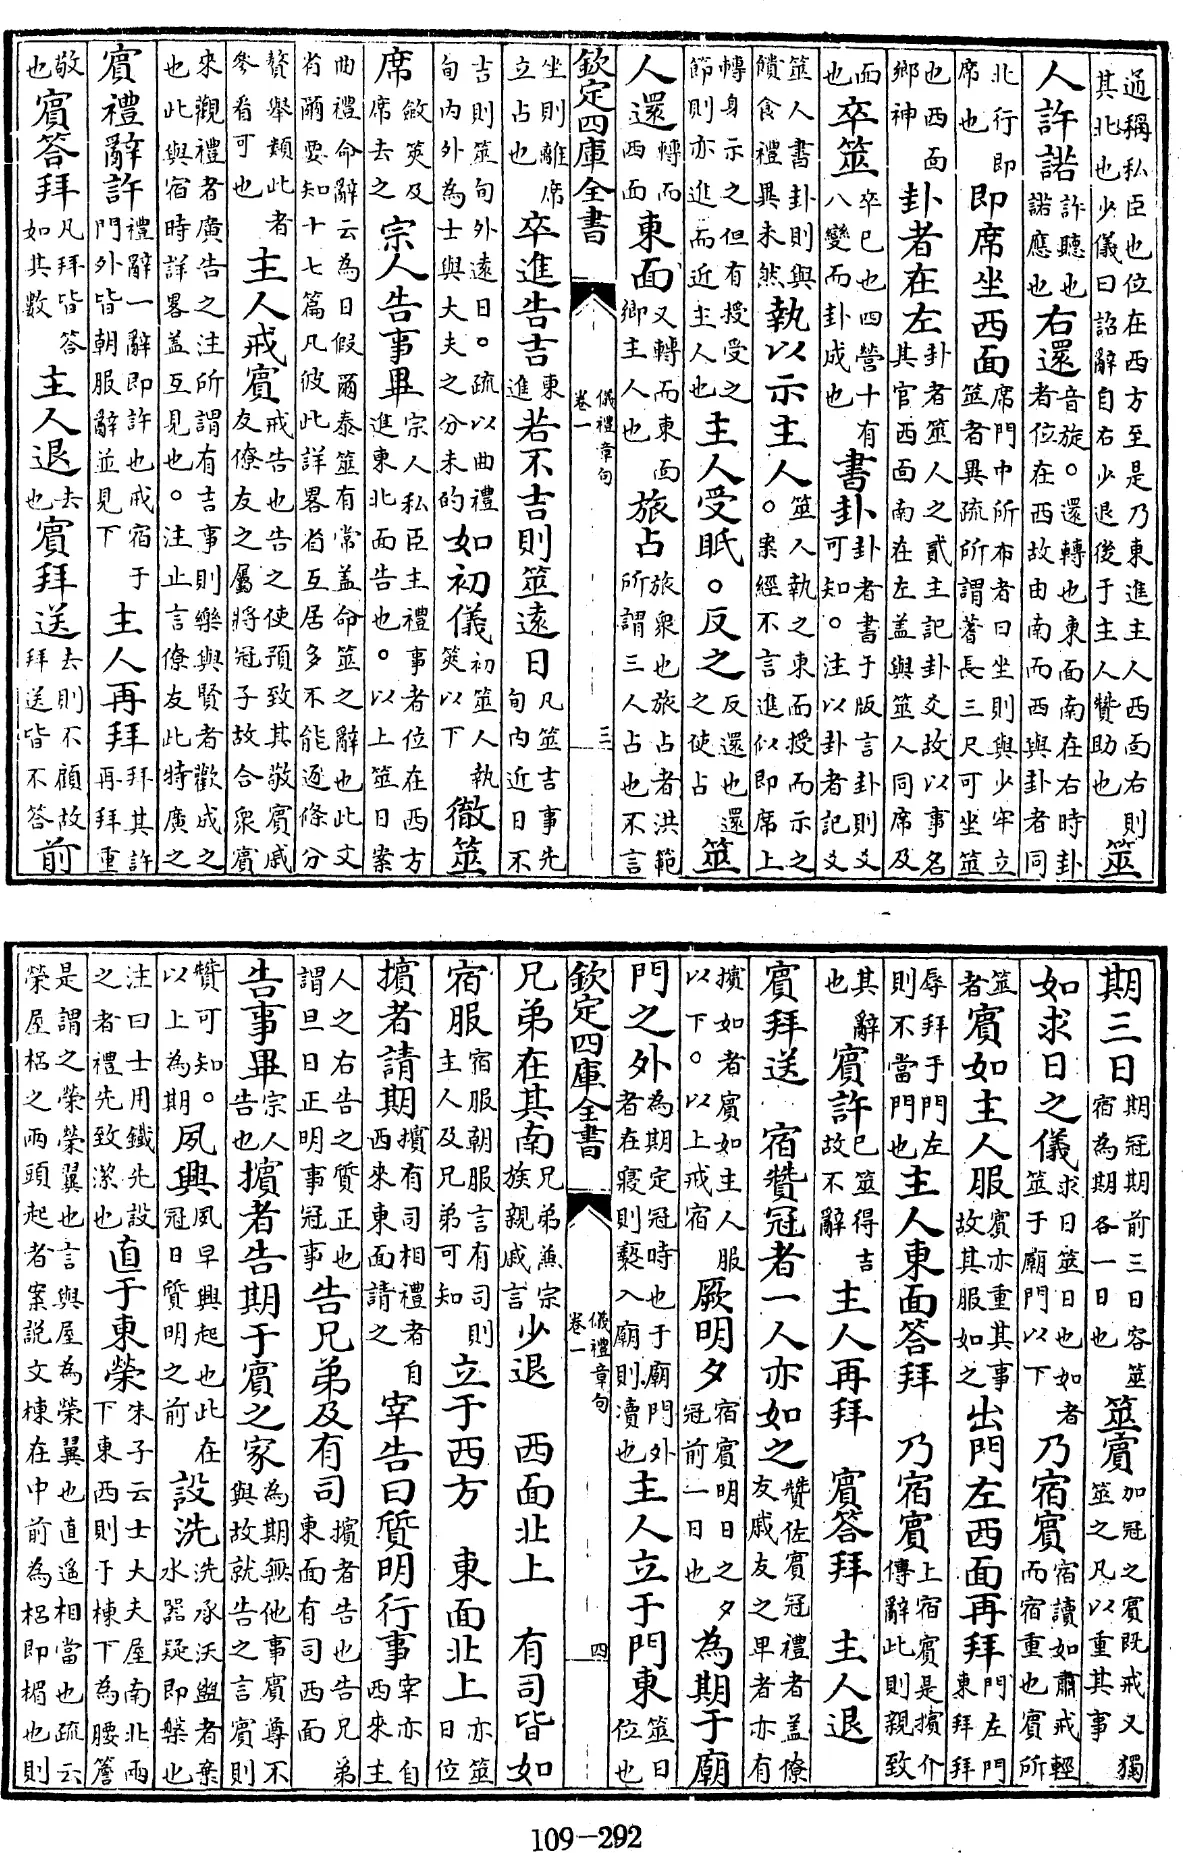 通稱私臣也位在西方至是乃東進主人西面右則其北也少儀曰詔辭自右少退後于主人贊助也筮
人許諾許聽也諾應也右還音旋。還轉也東面南在右時卦者位在西故由南而西與卦者同
北行即席也即席坐西面席門中所布者曰坐則與少牢立筮者異疏所謂蓍長三尺可坐筮
也西面鄉神卦者在左卦者筮人之貳主記卦爻故以事名其官西面南在左盖與筮人同席及
面也卒筮卒已也四營十有八變而卦成也書卦卦者書于版言卦則爻可知。注以卦者記爻
筮人書卦則與饋食禮異未然執以示主人筮人執之東面授而示之。案經不言進似即席上
轉身示之但有授受之節則亦進而近主人也主人受眂。反之反還也還之使占筮
人還轉而西面東面又轉而東面鄉主人也旅占旅衆也旅占者洪範所謂三人占也不言
欽定四庫全書 儀禮章句 卷一 三
坐則離席立占也卒進告吉東進若不吉則筮遠日凡筮吉事先旬內近日不
吉則筮旬外遠日。疏以曲禮旬內外為士與大夫之分未的如初儀初筮人執筴以下徹筮
席斂筴及席去之宗人告事畢宗人私臣主禮事者位在西方進東北面告也。以上筮日案
曲禮命辭云為日假爾泰筮有常盖命筮之辭也此文省爾要知十七篇凡彼此詳畧省互居多不能逐條分
贅舉類此者參看可也主人戒賓戒告也告之使預致其敬賓戚友僚友之屬將冠子故合衆賓
來觀禮者廣告之注所謂有吉事則樂與賢者歡成之也此與宿時詳畧盖互見也。注止言僚友此特廣之
賓禮辭許禮辭一辭即許也戒宿于門外皆朝服辭並見下主人再拜拜其許再拜重
敬也賓答拜凡拜皆答如其數主人退去也賓拜送去則不顧故拜送皆不答前
期三日期冠期前三日容筮宿為期各一日也筮賓加冠之賓既戒又獨筮之凡以重其事
如求日之儀求日筮日也如者筮于廟門以下乃宿賓宿讀如肅戒輕而宿重也賓所
筮者賓如主人服賓亦重其事故其服如之出門左西面再拜門左門東拜拜
辱拜于門左則不當門也主人東面答拜乃宿賓上宿賓是擯介傳辭此則親致
其辭也賓許已筮得吉故不辭主人再拜賓答拜主人退
賓拜送宿贊冠者一人亦如之贊佐賓冠禮者盖僚友戚友之卑者亦有
擯如者賓如主人服以下。以上戒宿厥明夕宿賓明日之夕冠前一日也為期于廟
門之外為期定冠時也于廟門外者在寢則褻入廟則瀆也主人立于門東筮日位也
欽定四庫全書 儀禮章句 卷一 四
兄弟在其南兄弟兼宗族親戚言少退西面北上有司皆如
宿服宿服朝服言有司則主人及兄弟可知立于西方東面北上亦筮日位
擯者請期擯有司相禮者自西來東面請之宰告曰質明行事宰亦自西來主
人之右告之質正也謂旦日正明事冠事告兄弟及有司擯者告也告兄弟東面有司西面
告事畢宗人告也擯者告期于賓之家為期無他事賓尊不與故就告之言賓則
贊可知。以上為期夙興夙早興起也此在冠日質明之前設洗洗承沃盥者棄水器疑即槃也
注曰士用鐵先設之者禮先致潔也直于東榮朱子云士大夫屋南北兩下東西則于棟下為腰簷
是謂之榮榮翼也言與屋為榮翼也直遥相當也疏云榮屋梠之兩頭起者案説文棟在中前為梠即楣也則
109-292